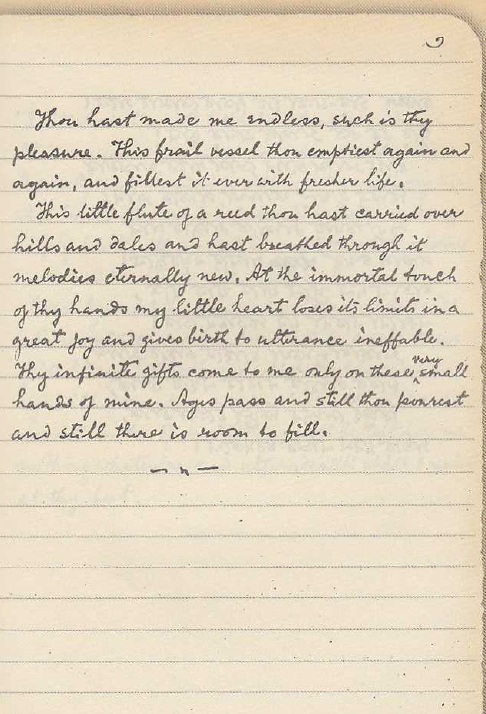 ૭
Thou hast made me endless, such is thy
pleasure. This frail vessel thou emptiest again and
again, and fillest it ever with fresher life.
This little flute of a reed thou hast carried over
hills and dales and hast breathed through it
melodies eternally new. At the immortal touch
of thy hands my little heart loses its limits in a
great joy and gives birth to utterance ineffable.
Thy infinite gifts come to me only on these very small
hands of mine. Ages pass and still thou pourest
and still there is room to fill.